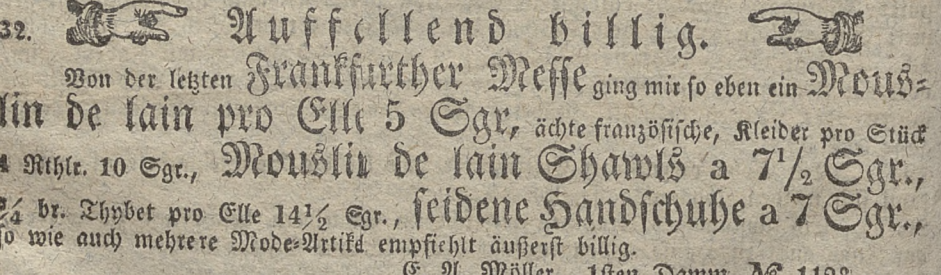 32. Auffallend billig.
Von der letzten Frankfurther Messe ging mir so eben ein Mous-
lin de lain pro Elle 5 Sgr, ächte französische, Kleider pro Stück
Rthlr. 10 Sgr., Mouslin de lain Shawls a 7½ Sgr.,
br. Thybet pro Elle 14½ Sgr., seidene Handschuhe a 7 Sgr.,
so wie auch mehrere Mode-Artikel empfiehlt äußerst billig.
E. A. Möller, 1sten Damm